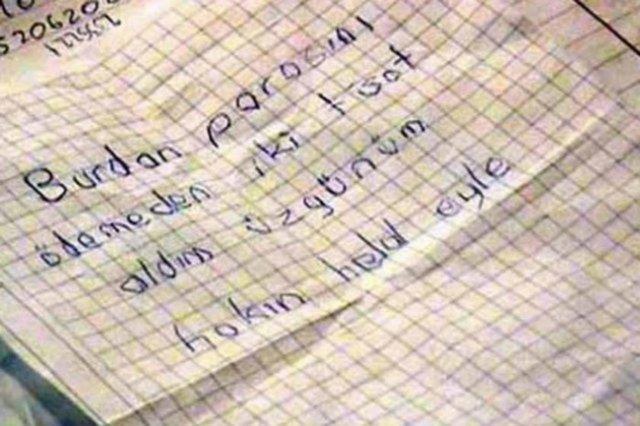 5206206
17257
Burdan parasını
ödemeden iki tişöt
aldım üzgünüm
hakın halal eyle